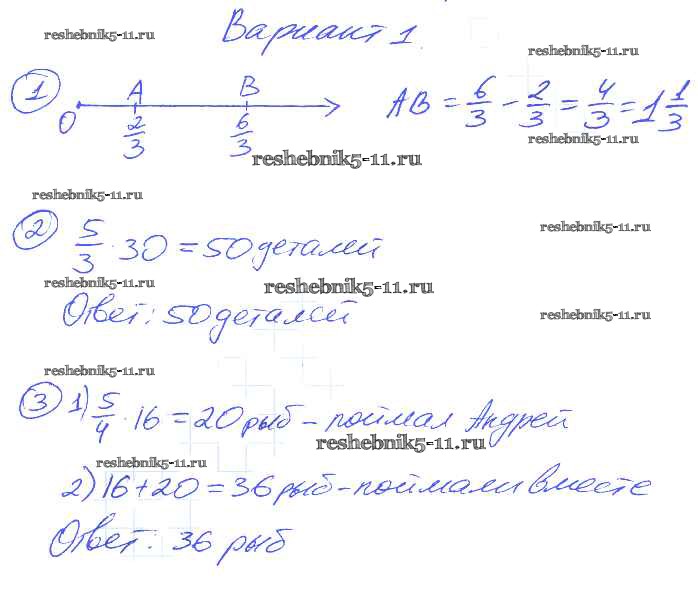 reshebnik5-11.ru
Вариант 1
reshebnik5-11.ru
1 O A 2/3 B 6/3 AB = 6/3 - 2/3 = 4/3 = 1 1/3
reshebnik5-11.ru
reshebnik5-11.ru
reshebnik5-11.ru
2 5/3 · 30 = 50 деталей
reshebnik5-11.ru
reshebnik5-11.ru
reshebnik5-11.ru
Ответ: 50 деталей
reshebnik5-11.ru
reshebnik5-11.ru
3 1) 5/4 · 16 = 20 рыб - поймал Андрей
reshebnik5-11.ru
reshebnik5-11.ru
2) 16 + 20 = 36 рыб - поймали вместе
Ответ: 36 рыб